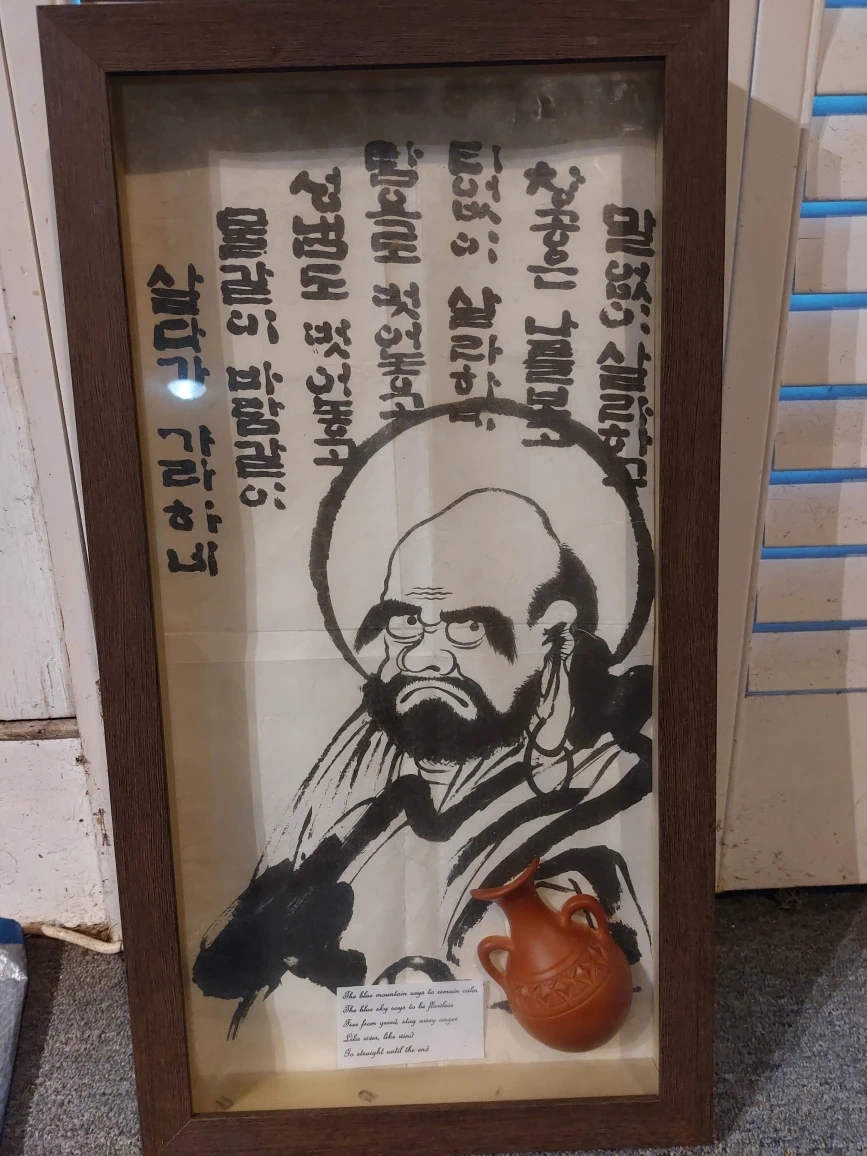 말없이 살라하고
창공은 나를보고
티없이 살라하네
탐욕도 벗어놓고
성냄도 벗어놓고
물같이 바람같이
살다가 가라하네
The blue mountain says to remain calm
The blue sky says to be flawless
Free from greed, stay away anger
Like river, like wind
Go straight until the end